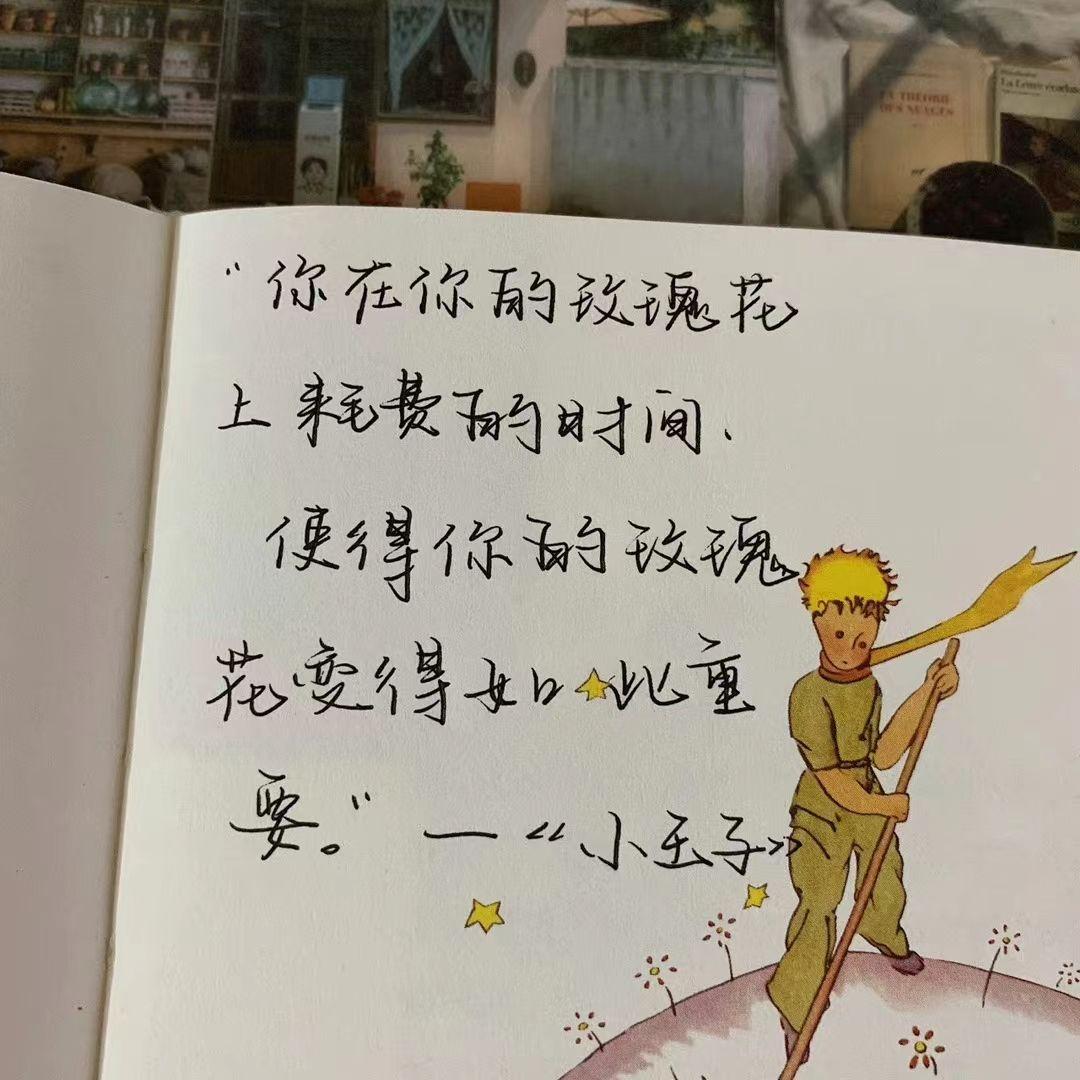 LA THÉORIE
DES NUAGES
La Lettre écarlate
“你在你的玫瑰花
上耗费的时间、
使得你的玫瑰
花变得如此重
要。”—《小王子》